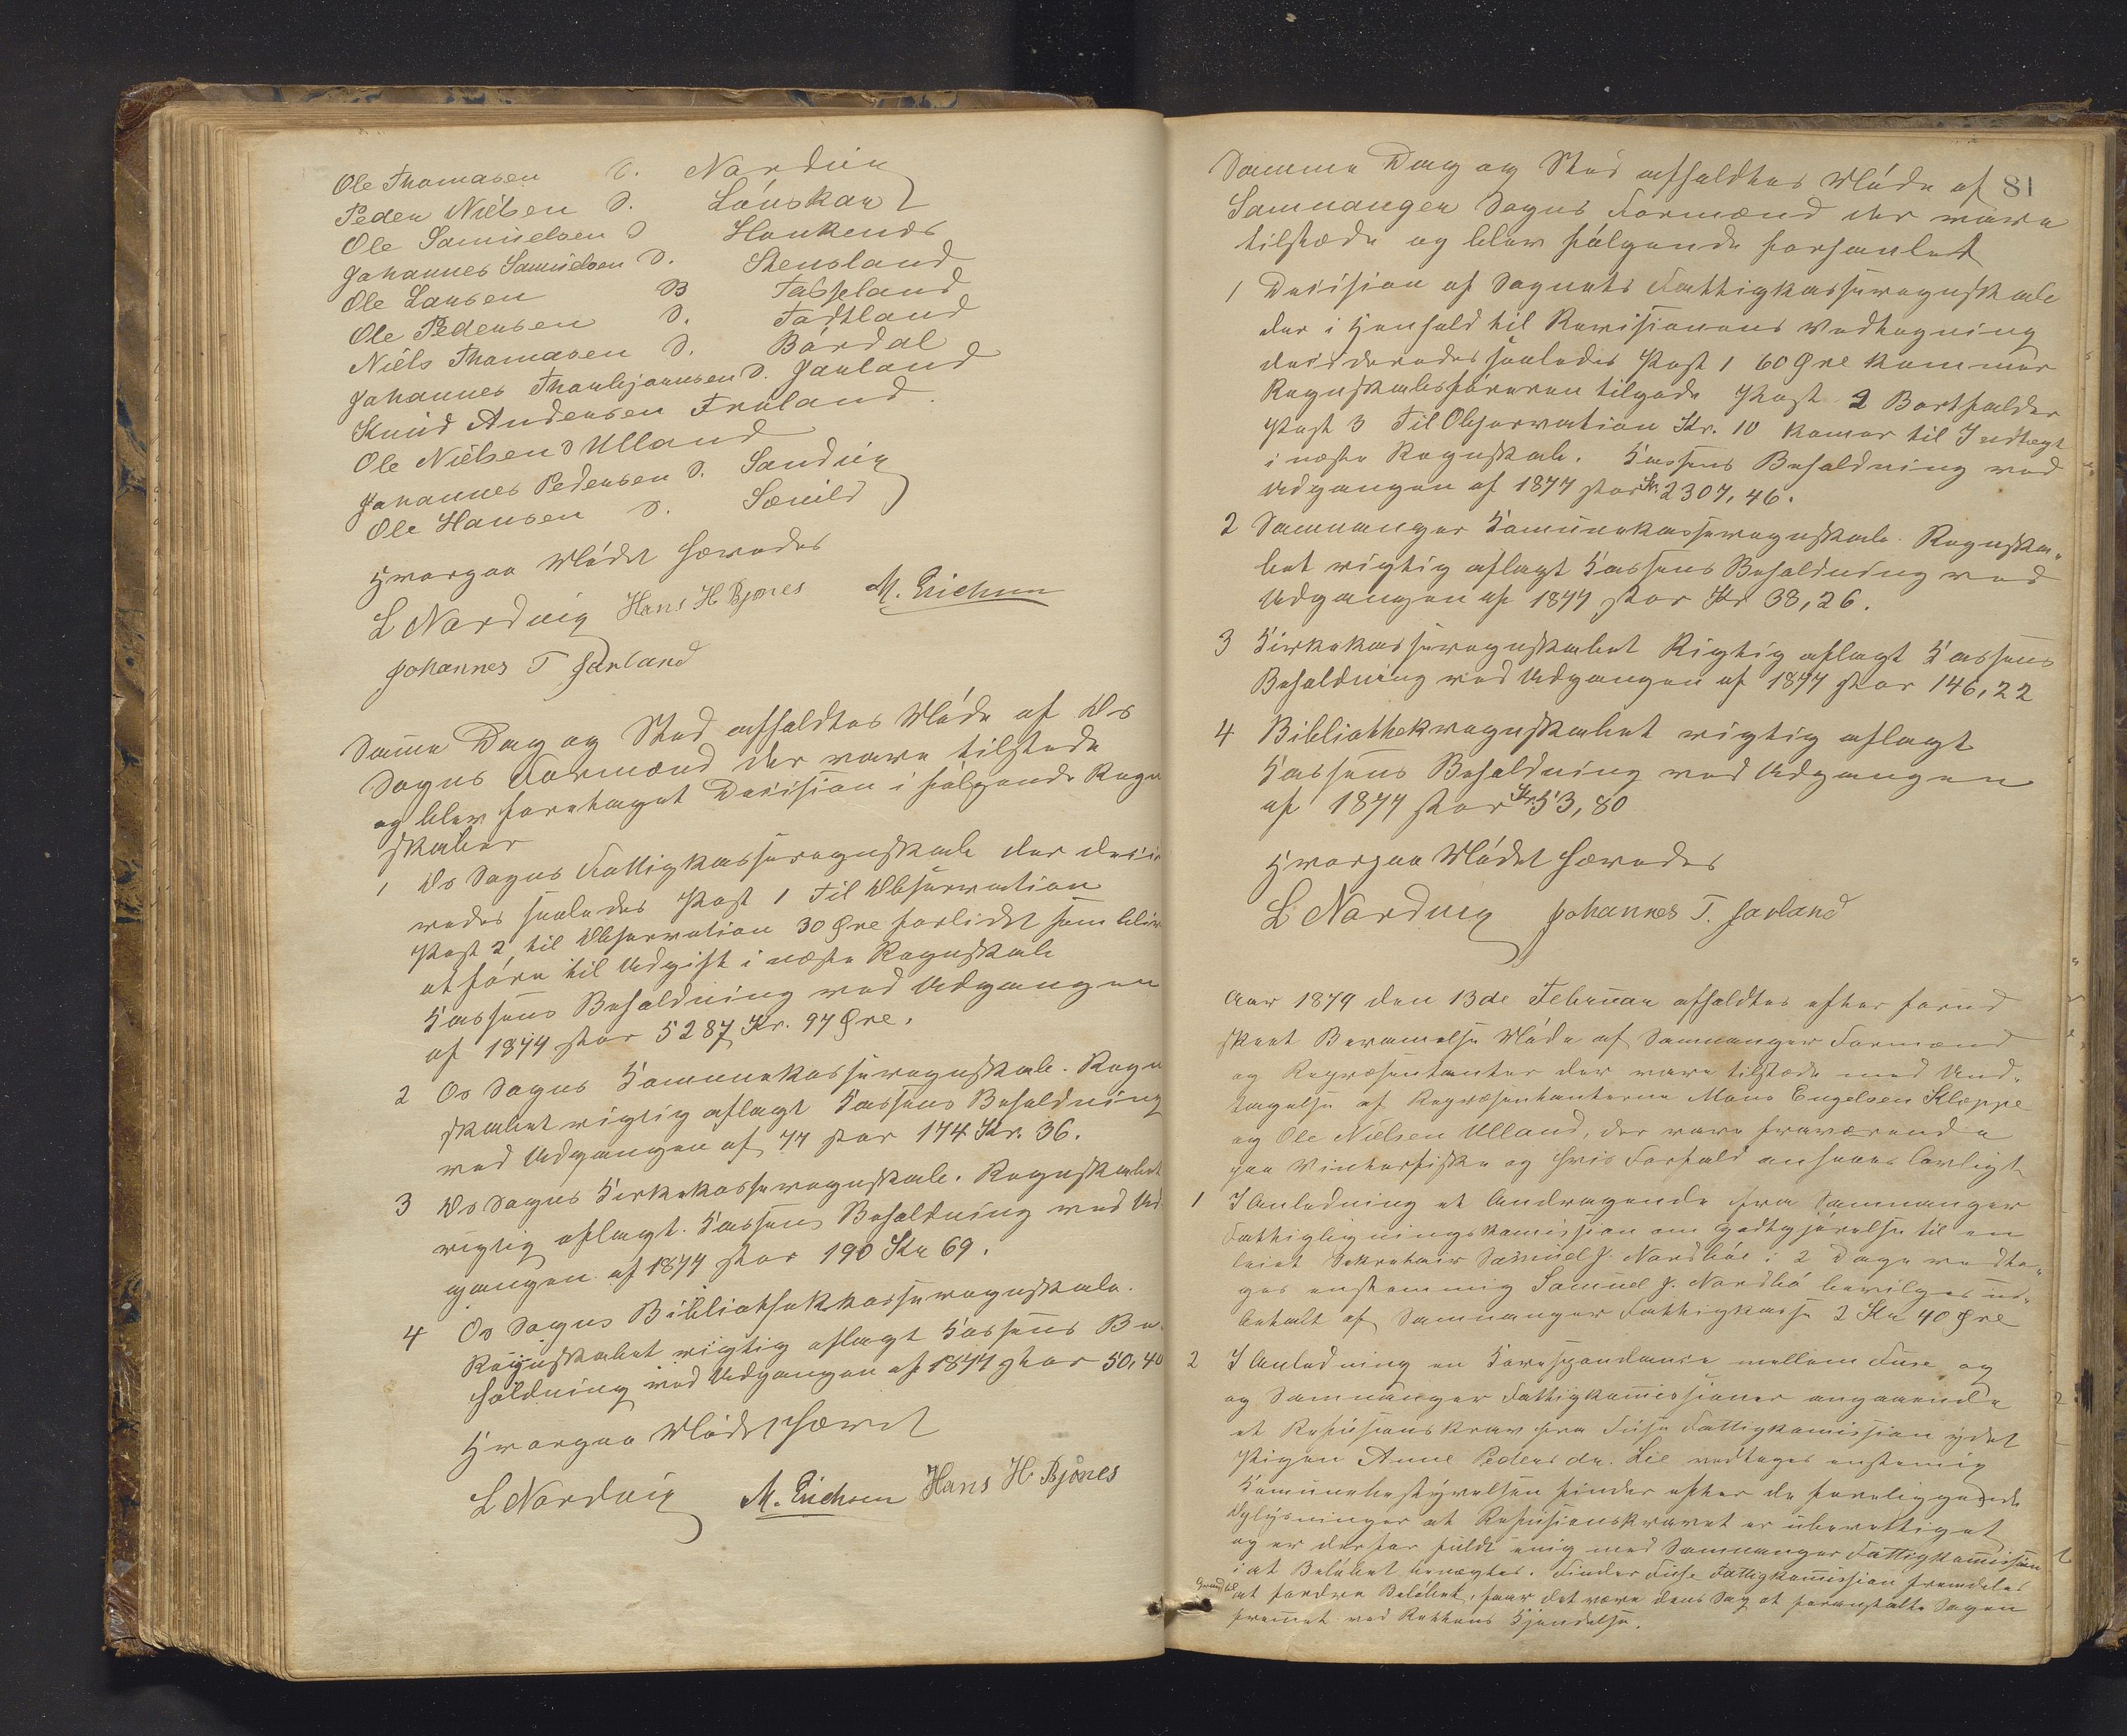 Ole Thomasen D. Nordvig
Peder Nielsen D. Lönskar
Ole Samuelsen D Haukends
Johannes Samuelsen D. Stensland
Ole Larsen B Tasseland
Ole Pedersen D. Tadtland
Niels Thomasen D. Bårdal
Johannes Thorbjörnsen D. Jarland
Knud Andersen Fröland.
Ole Nielsen D Ulland
Johannes Pedersen D. Sandvig
Ole Hansen D. Sævild
Hvorpaa Mödet hævedes
L Nordvig Hans H Bjønes M. Erichsen
Johannes T Jarland
Samme Dag og Sted afholdtes Möde af Os
Sogns Formænd der vare tilstede
og blev foretaget Decision i fölgende Regn
skaber
1 Os Sogns Fattigkasseregnskab der deci
redes saaledes Post 1 Til Observation
Post 2 til Observation 30 Øre forlidet som bliv
at före til Udgift i næste Regnskab
Kassens Beholdning ved Udgangen
af 1877 stor 5287 Kr. 97 Øre.
2 Os Sogns Kommunekasseregnskab. Regn
skabet rigtig aflagt Kassens Beholdning
ved Udgangen af 77 stor 174 Kr. 36.
3 Os Sogns Kirkekasseregnskab. Regnskabet
rigtig aflagt. Kassens Beholdning ved Ud
gangen af 1877 stor 190 Kr 69.
4 Os Sogns Bibliothekkasseregnskab.
Regnskabet rigtig aflagt Kassens Be
holdning ved Udgangen af 1877 stor 50,40
Hvorpaa Mödet hævet
L Nordvig M. Erichsen Hans H Bjønes
81
Samme Dag og Sted afholdtes Möde af
Samnanger Sogns Formænd der vare
tilstede og blev fölgende forhandlet
1 Decision af Sognets Fattigkasseregnskab
der i Henhold til Revisionens Vedtegning
desideredes saaledes Post 1 60 Øre kommer
Regnskabsföreren tilgode Post 2 Bortfalder
Post 3 Til Observation Kr. 10 komer til Indtægt
i næste Regnskab. Kassens Beholdning ved
Udgangen af 1877 stor Kr. 2307,46.
2 Samnanger Komunekasseregnskab. Regnska-
bet rigtig aflagt Kassens Beholdning ved
Udgangen af 1877 stor Kr 38,26.
3 Kirkekasseregnskabet Rigtig aflagt Kassens
Beholdning ved Udgangen af 1877 stor 146,22
4 Bibliothekregnskabet rigtig aflagt
Kassens Beholdning ved Udgangen
af 1877 stor Kr. 53,80
Hvorpaa Mödet hævedes
L Nordvig Johannes T. Jarland
Aar 1879 den 13de Februar afholdtes efter forud
skeet Berammelse Möde af Samnanger Formænd
og Repræsentanter der vare tilstede med Und-
tagelse af Repræsentanterne Mons Engelsen Kleppe
og Ole Nielsen Ulland, der vare fraværende
paa Vinterfiske og hvis Forfald ansees lovligt
1 I Anledning et Andragende fra Samnanger
Fattigligningskomission om Godtgjörelse til en
leiet Sekretair Samuel J. Nordbö i 2 Dage vedto-
ges enstemmig Samuel J. Nordbö bevilges ud-
betalt af Samnanger Fattigkasse 2 Kr 40 Øre
2 I Anledning en Korespondance mellem Fuse og
og Samnanger Fattigkomissioner angaaende
et Refusionskrav fra Fuse Fattigkomission ydet
Pigen Anne Pedersdr. Lie vedtoges enstemig
Komunebestyrelsen finder efter de foreliggende
Oplysninger at Refusionskravet er uberettiget
og er derfor fuldt enig med Samnanger Fattigkomission
i at Belöbet benægtes. Finder Fuse Fattigkomission fremdeles
Grund til at fordre Belöbet, faar det være dens Sag at foranstalte Sagen
fremet ved Rettens Kjendelse.